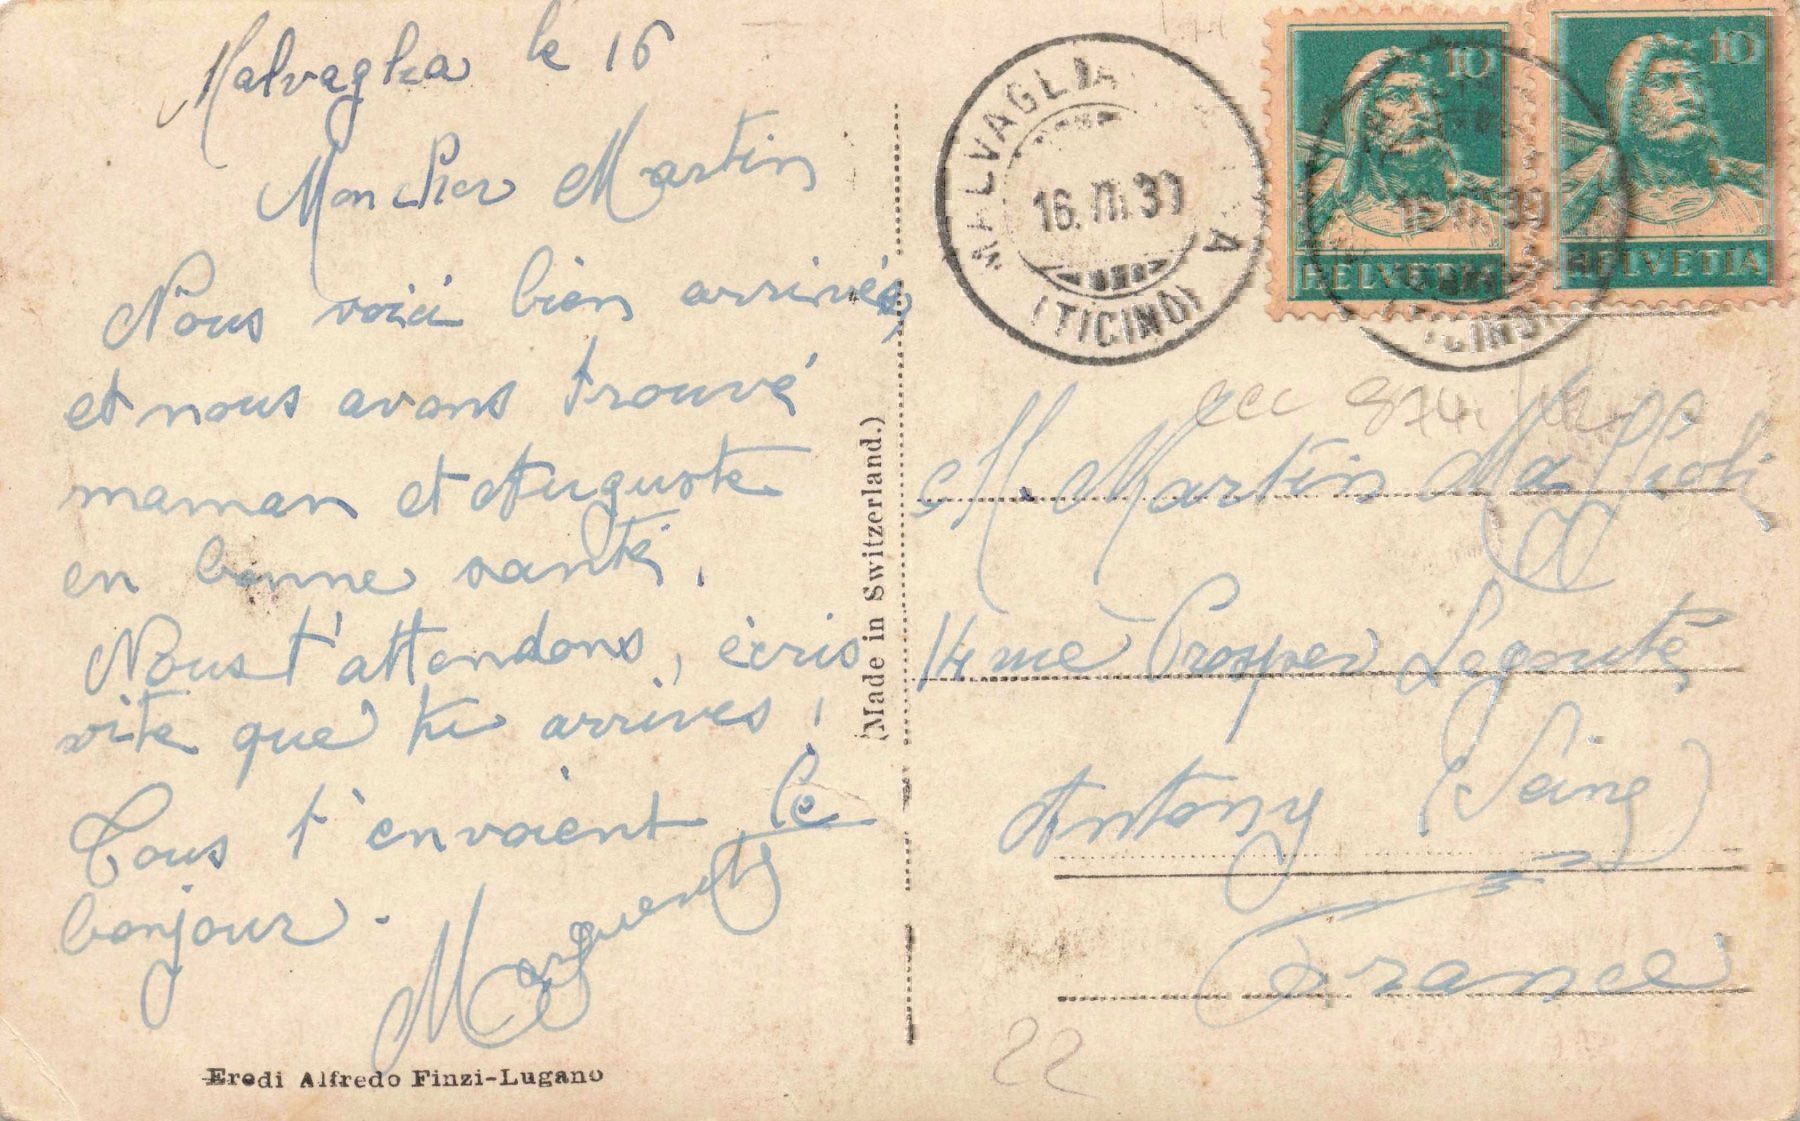 Malvaglia le 16
Mon cher Martin
Nous voici bien arrivés,
et nous avons trouvé
maman et Auguste
en bonne santé.
Nous t'attendons, écris
vite que tu arrives !
Tous t'envoient le
bonjour.
Marguerite
Eredi Alfredo Finzi-Lugano
(Made in Switzerland.)
MALVAGLIA
16. VII. 30
(TICINO)
10
HELVETIA
10
HELVETIA
874
M. Martin Maffioli
14 rue Prosper Legouté
Antony (Seine)
France
22